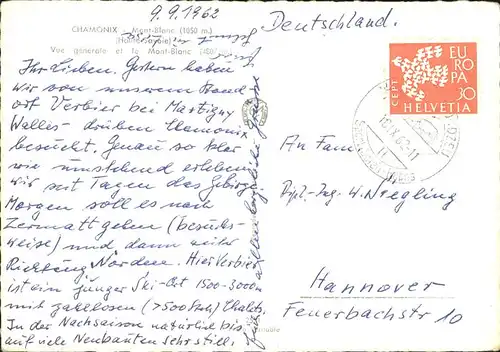 9.9.1962
Deutschland.
CHAMONIX - Mont-Blanc (1050 m.)
(Haute-Savoie)
Vue générale et le Mont-Blanc
Ihr Lieben. Gestern haben
wir von unserem Stand
ort Verbier bei Martigny
Wallis- drüben Chamonix
besucht. Genau so klar
wie umstehend erleben
wir seit Tagen das Gebirge
Morgen soll es nach
Zermatt gehen (besuchs-
weise) und dann weiter
Richtung Norden. Hier Verbier
ist ein junger Ski-Ort 1500-3000m
mit zahllosen (>500 Stck) Chalets.
In der Nachsaison natürlich bis
auf viele Neubauten sehr still.
EUROPA
CEPT
30
HELVETIA
An Fam
Dipl.-Ing. W. Niegling
Hannover
Feuerbachstr 10